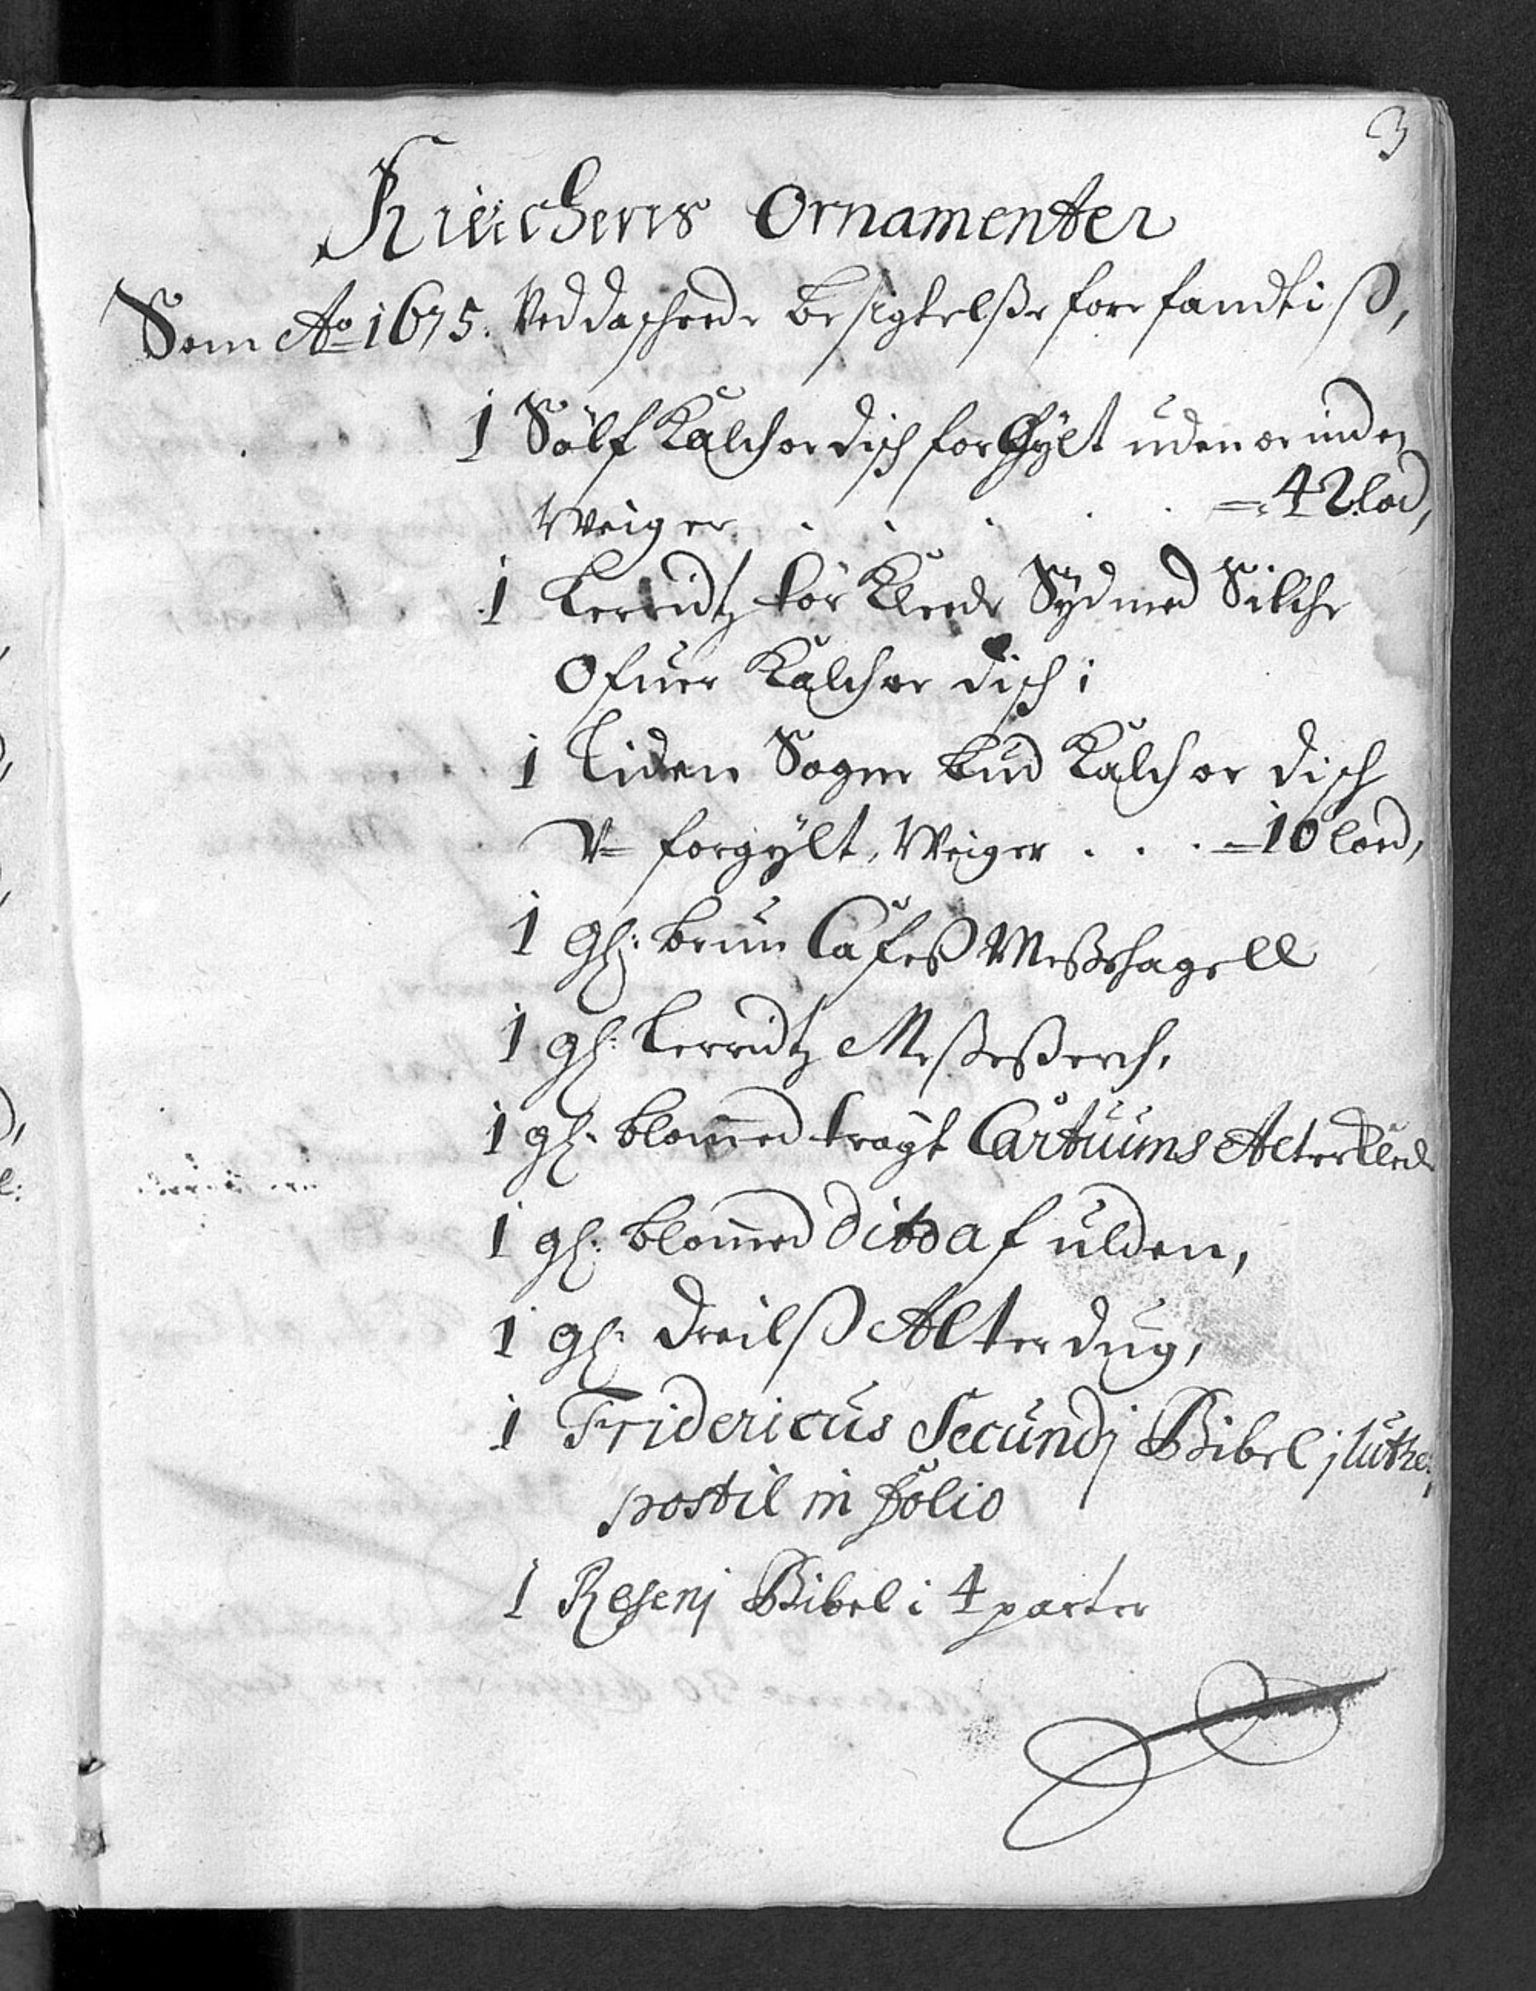 3
Kirchens Ornamenter
Som Ao 1675. Ved daskeede besigtelße forefandtiß,
1 Sölf Kalch oc disch forgÿlt uden oc inden
Weiger . . . . . = 42 lod,
1 Lerridtz tör Kleede Sÿd med Silche
Ofuer Kalch oc disch i
1 Liden Sogne bud Kalch oc disch
V= forgÿlt, Weiger . . . = 10 loed,
1 gl: brun Cafeß Meßehagell
1 gl: Lerridtz Meßeßerch,
1 gl: blommed trÿgt Cartuums Alterklede
1 gl: blommed ditto af ulden,
1 gl: dreilß Alter dug,
1 Fridericus Secundj Bibel j luthe:
postil in folio
1 Resenj Bibel i 4 parter